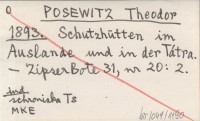 0
POSEWITZ Theodor
1893. Schutzhütten im
Auslande und in der Tátra.
– Zipser Bote 31, nr 20: 2.
schroniska Ts
MKE